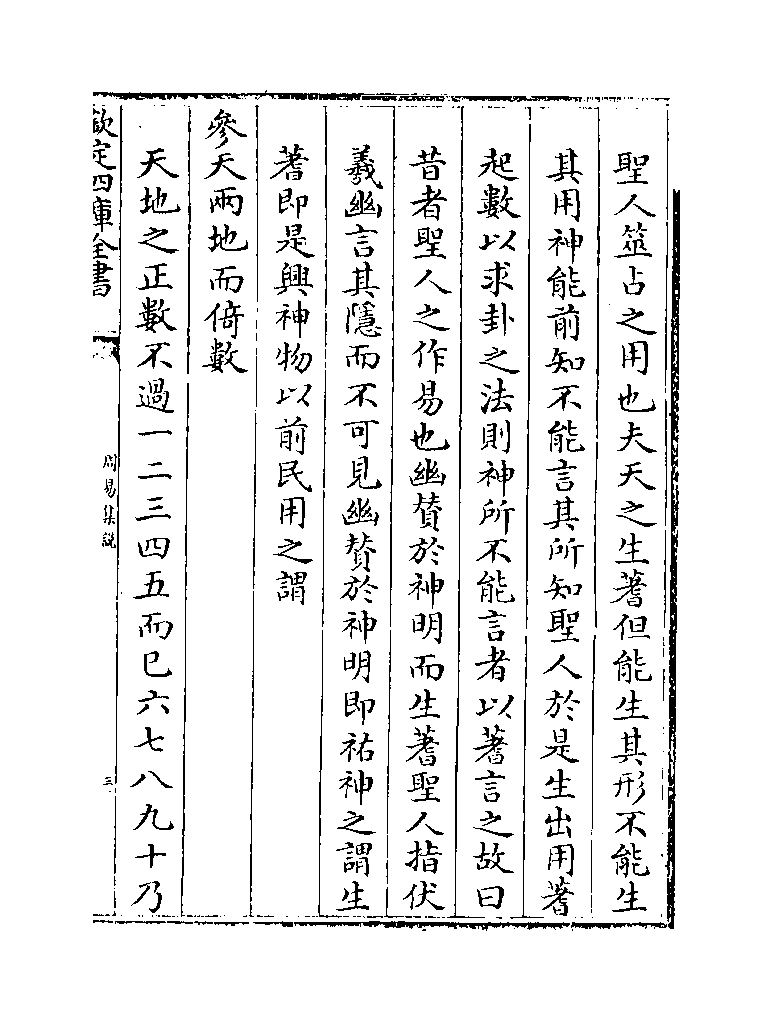 聖人筮占之用也夫天之生蓍但能生其形不能生
其用神能前知不能言其所知聖人於是生出用蓍
起數以求卦之法則神所不能言者以蓍言之故曰
昔者聖人之作易也幽賛於神明而生蓍聖人指伏
羲幽言其隱而不可見幽賛於神明即祐神之謂生
蓍即是興神物以前民用之謂
參天兩地而倚數
天地之正數不過一二三四五而已六七八九十乃
欽定四庫全書
周易集說
三